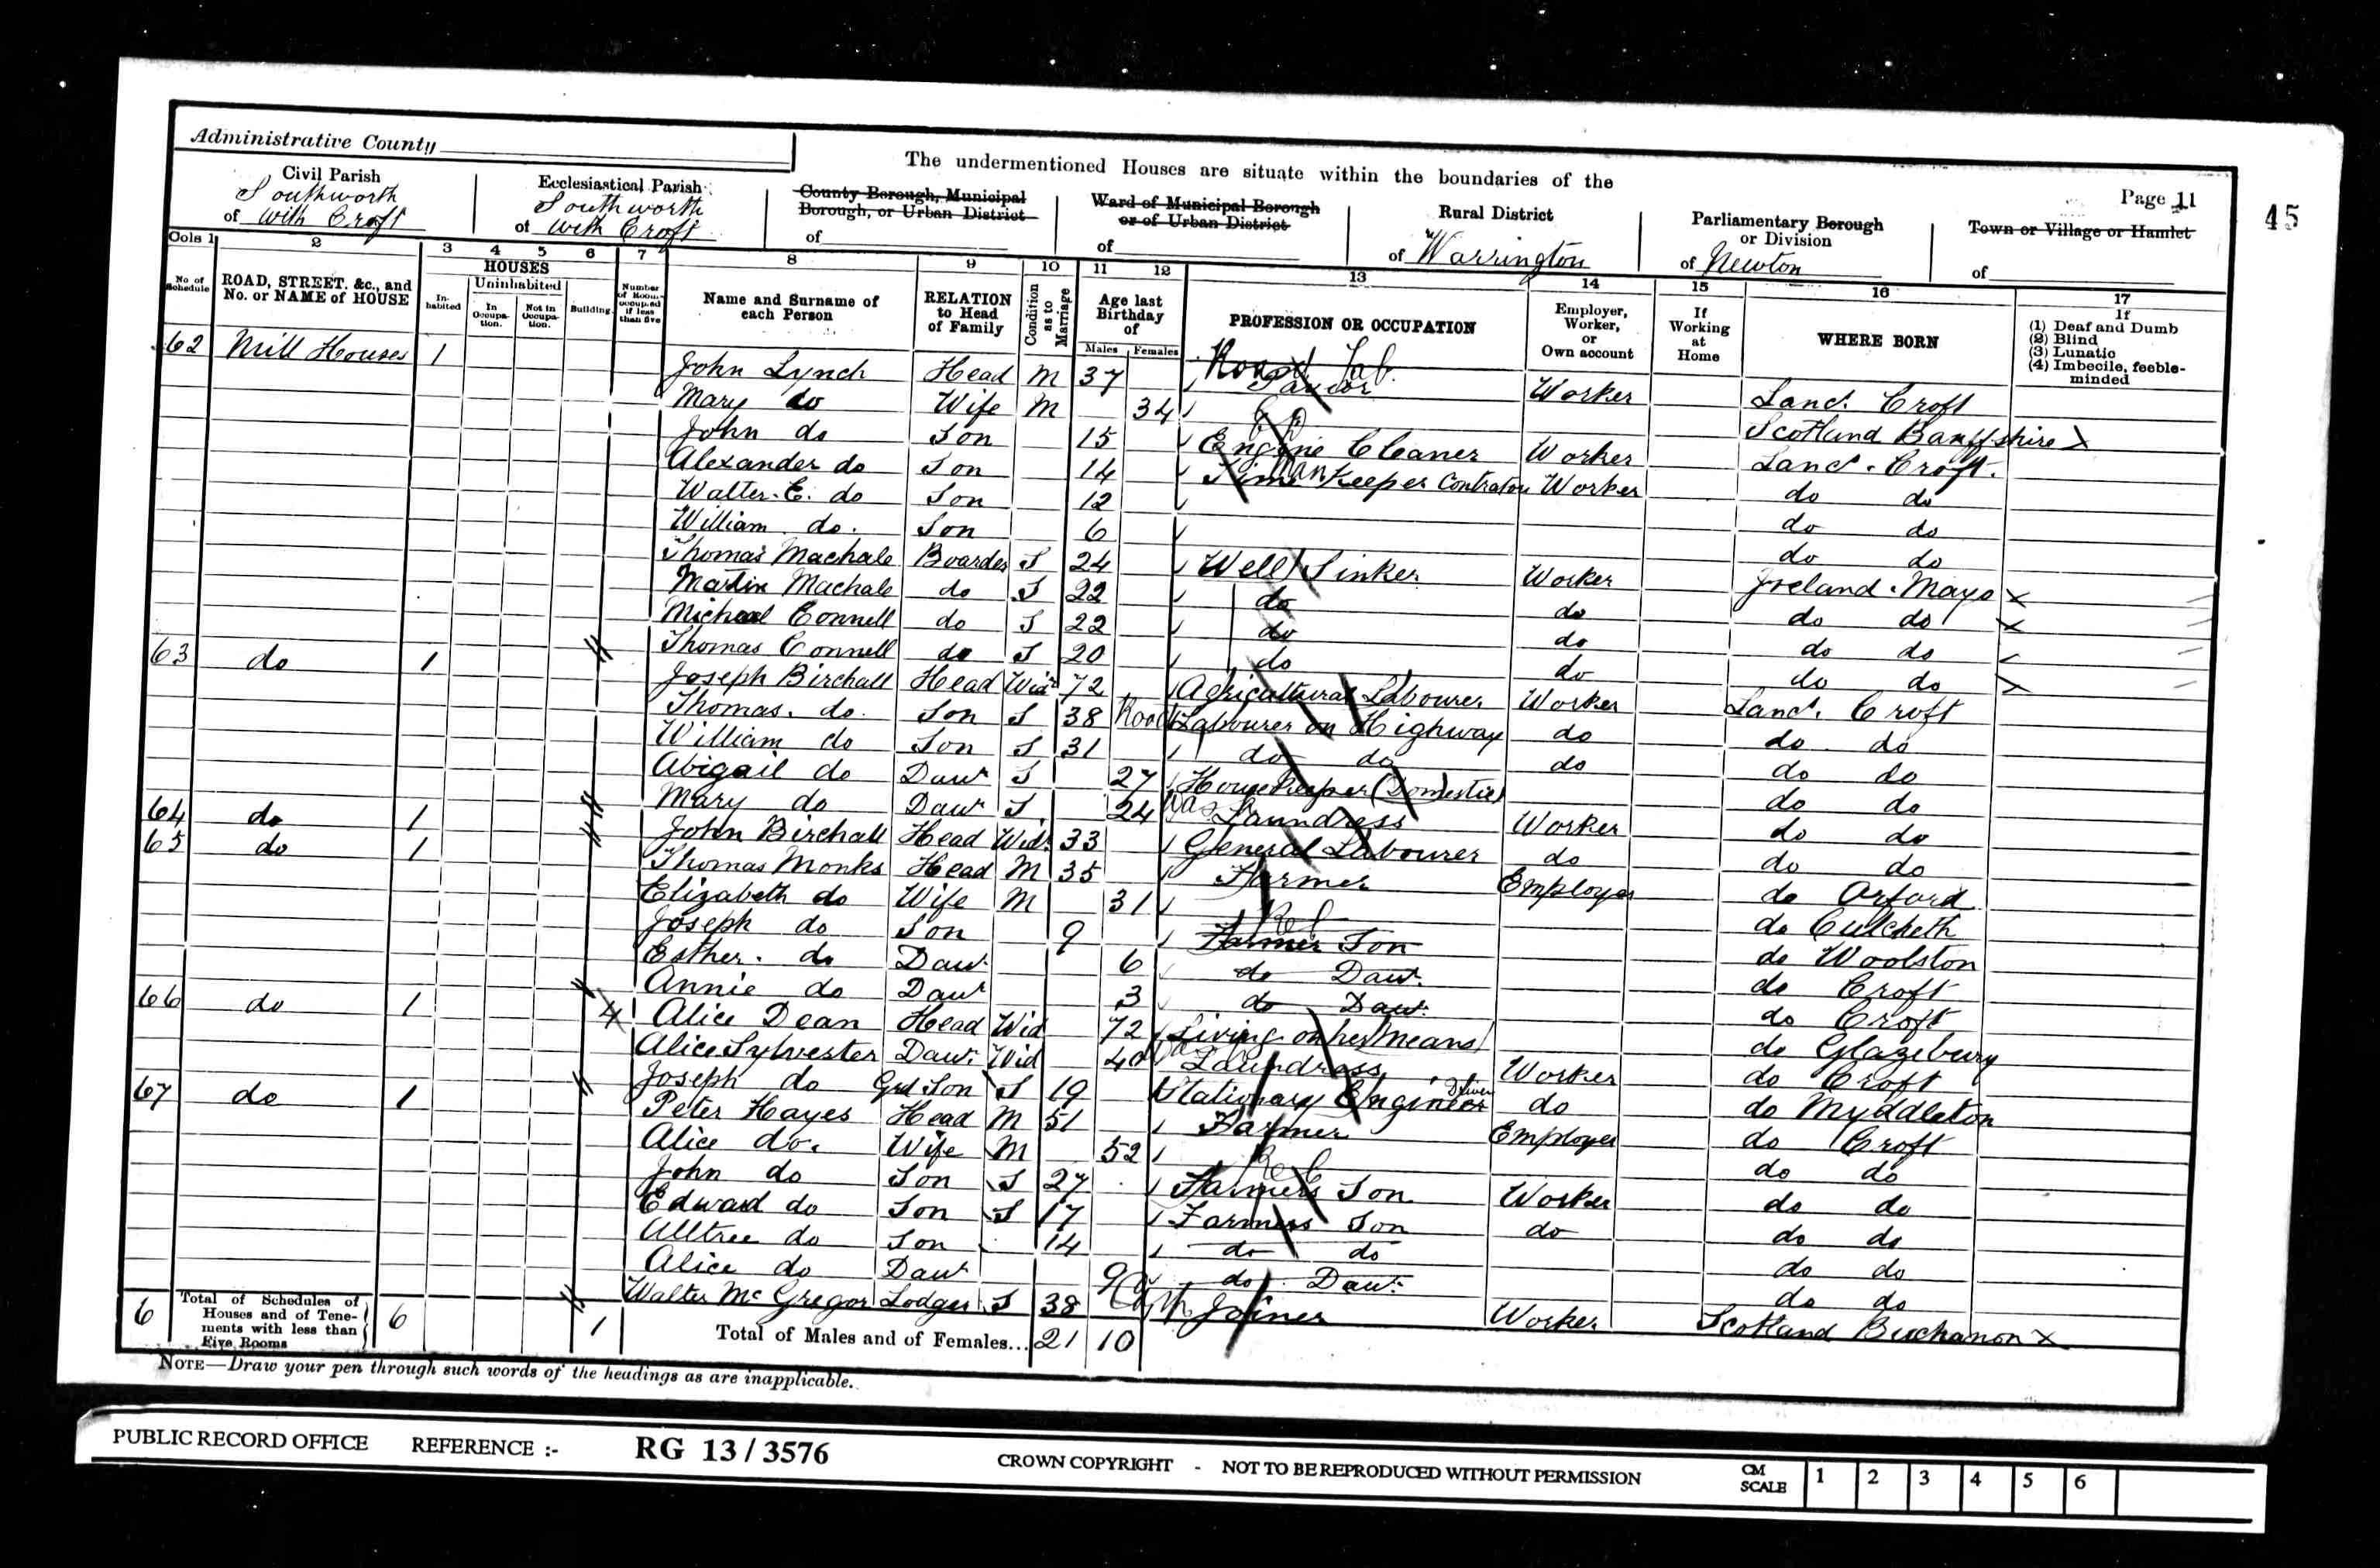 Administrative County
The undermentioned Houses are situate within the boundaries of the
Page 11
45
Civil Parish
Southworth
of with Croft
Ecclesiastical Parish
Southworth
of with Croft
County Borough, Municipal
Borough, or Urban District
of
Ward of Municipal Borough
or of Urban District
of
Rural District
of Warrington
Parliamentary Borough
or Division
of Newton
Town or Village or Hamlet
of
Cols 1 2 3 4 5 6 7 8 9 10 11 12 13 14 15 16 17
No of Schedule
ROAD, STREET, &c., and No. or NAME of HOUSE
HOUSES
In-habited
Uninhabited
In Occupa-tion.
Not in Occupa-tion.
Building.
Number of Rooms occupied if less than five
Name and Surname of each Person
RELATION to Head of Family
Condition as to Marriage
Age last Birthday of
Males Females
PROFESSION OR OCCUPATION
Employer, Worker, or Own account
If Working at Home
WHERE BORN
If
(1) Deaf and Dumb
(2) Blind
(3) Lunatic
(4) Imbecile, feeble-minded
62 Mill Houses 1 John Lynch Head M 37 Road Lab. Worker Lanc. Croft
Mary do Wife M 34 Scotland Banffshire X
John do Son 15 Engine Cleaner Worker Lanc. Croft.
Alexander do Son 14 Time Keeper Contractor Worker do do
Walter. E. do Son 12 do do
William do. Son 6 do do
Thomas Machale Boarder S 24 Well Sinker Worker Ireland. Mayo X
Martin Machale do S 22 do do do do X
Micheal Connell do S 22 do do do do
Thomas Connell do S 20 do do do do
63 do 1 Joseph Birchall Head Widr 72 Agricultural Labourer Worker Lanc. Croft
Thomas. do. Son S 38 Road Labourer on Highway do do do
William do Son S 31 do do do do do
Abigail do Daur S 27 House Keeper (Domestic) do do
Mary do Daur S 24 Laundress Worker do do
64 do 1 John Birchall Head Widr 33 General Labourer do do do
65 do 1 Thomas Monks Head M 35 Farmer Employer do Orford
Elizabeth do Wife M 31 do Culcheth
Joseph do Son 9 Farmer Son do Woolston
Esther. do Daur 6 do Daur. do Croft
Annie do Daur 3 do Daur. do Croft
66 do 1 4 Alice Dean Head Wid 72 Living on her means do Glazebury
Alice Sylvester Daur Wid 40 Laundress Worker do Croft
Joseph do Grd Son S 19 Stationary Engine Driver do do Myddleton
67 do 1 Peter Hayes Head M 51 Farmer Employer do Croft
Alice do. Wife M 52 do do
John do Son S 27 Farmers Son Worker do do
Edward do Son S 17 Farmers Son do do do
Alltree do Son 14 do do do do
Alice do Daur 9 do Daur do do
Walter Mc Gregor Lodger S 38 Joiner Worker Scotland Buchanon X
6 Total of Schedules of Houses and of Tene-ments with less than Five Rooms 6 1 Total of Males and of Females... 21 10
NOTE—Draw your pen through such words of the headings as are inapplicable.
PUBLIC RECORD OFFICE REFERENCE :- RG 13 / 3576 CROWN COPYRIGHT - NOT TO BE REPRODUCED WITHOUT PERMISSION CM SCALE 1 2 3 4 5 6